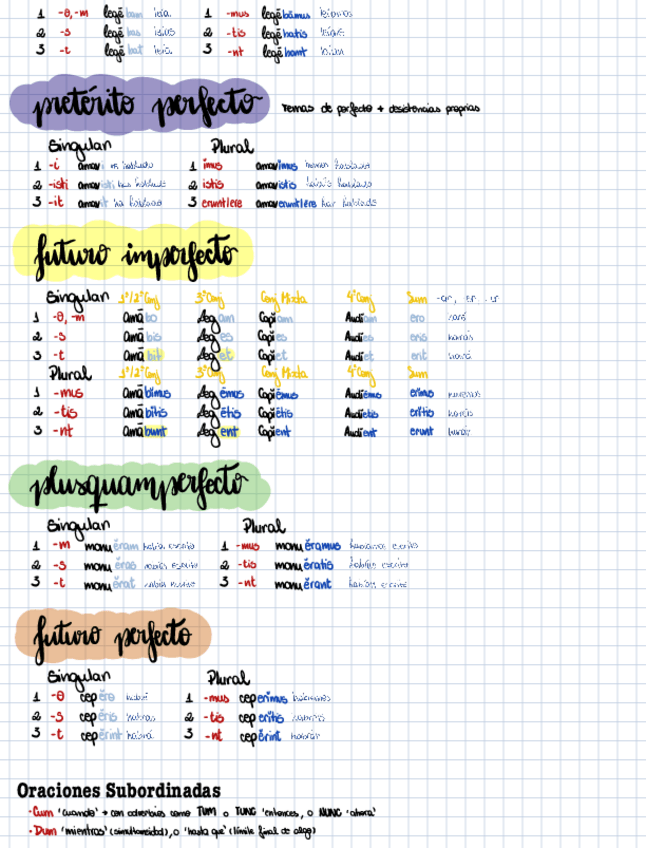 1 -θ, -m legēbam leía. 1 -mus legēbāmus leíamos
2 -s legēbas leías 2 -tis legēbatis leíais
3 -t legēbat leía. 3 -nt legēbant leían
pretérito perfecto Temas de perfecto + desistencias propias
Singular Plural
1 -i amavi 1 imus amavimus hemos hablado
2 -isti amavisti has hablado 2 istis amavistis habéis hablado
3 -it amavit ha hablado 3 erunt/ere amaverunt/ere han hablado
futuro imperfecto
Singular 1º/2ºConj 3ºConj Conj Mixta 4ºConj Sum
1 -θ, -m Amābo Legam Capiam Audiam ero
2 -s Amābis Leges Capies Audies eris
3 -t Amābit Leget Capiet Audiet erit
Plural 1º/2ºConj 3ºConj Conj Mixta 4ºConj Sum
1 -mus Amābimus Legēmus Capiēmus Audiēmus erimus
2 -tis Amābitis Legētis Capiētis Audiētis eritis
3 -nt Amābunt Legent Capient Audient erunt
plusquamperfecto
Singular Plural
1 -m monuĕram había escrito 1 -mus monuĕramus habíamos escrito
2 -s monuĕras habías escrito 2 -tis monuĕratis habíais escrito
3 -t monuĕrat 3 -nt monuĕrant habían escrito
futuro perfecto
Singular Plural
1 -θ cepĕro habré 1 -mus ceperimus habremos
2 -s cepĕris habrás 2 -tis ceperitis
3 -t cepĕrint habrá 3 -nt cepĕrint habrán
Oraciones Subordinadas
-Cum 'cuando' → con adverbios como TUM o TUNC 'entonces', o NUNC 'ahora'
-Dum 'mientras' (simultaneidad), o 'hasta que' (límite final de algo)